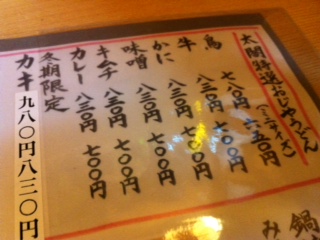 太閤特選おじやうどん
(ミニサイズ)
鳥 七八〇円 六五〇円
牛 八三〇円 七〇〇円
かに 八三〇円 七〇〇円
味噌 八三〇円 七〇〇円
キムチ 八三〇円 七〇〇円
カレー 八三〇円 七〇〇円
冬期限定
カキ 九八〇円 八三〇円
鍋
み